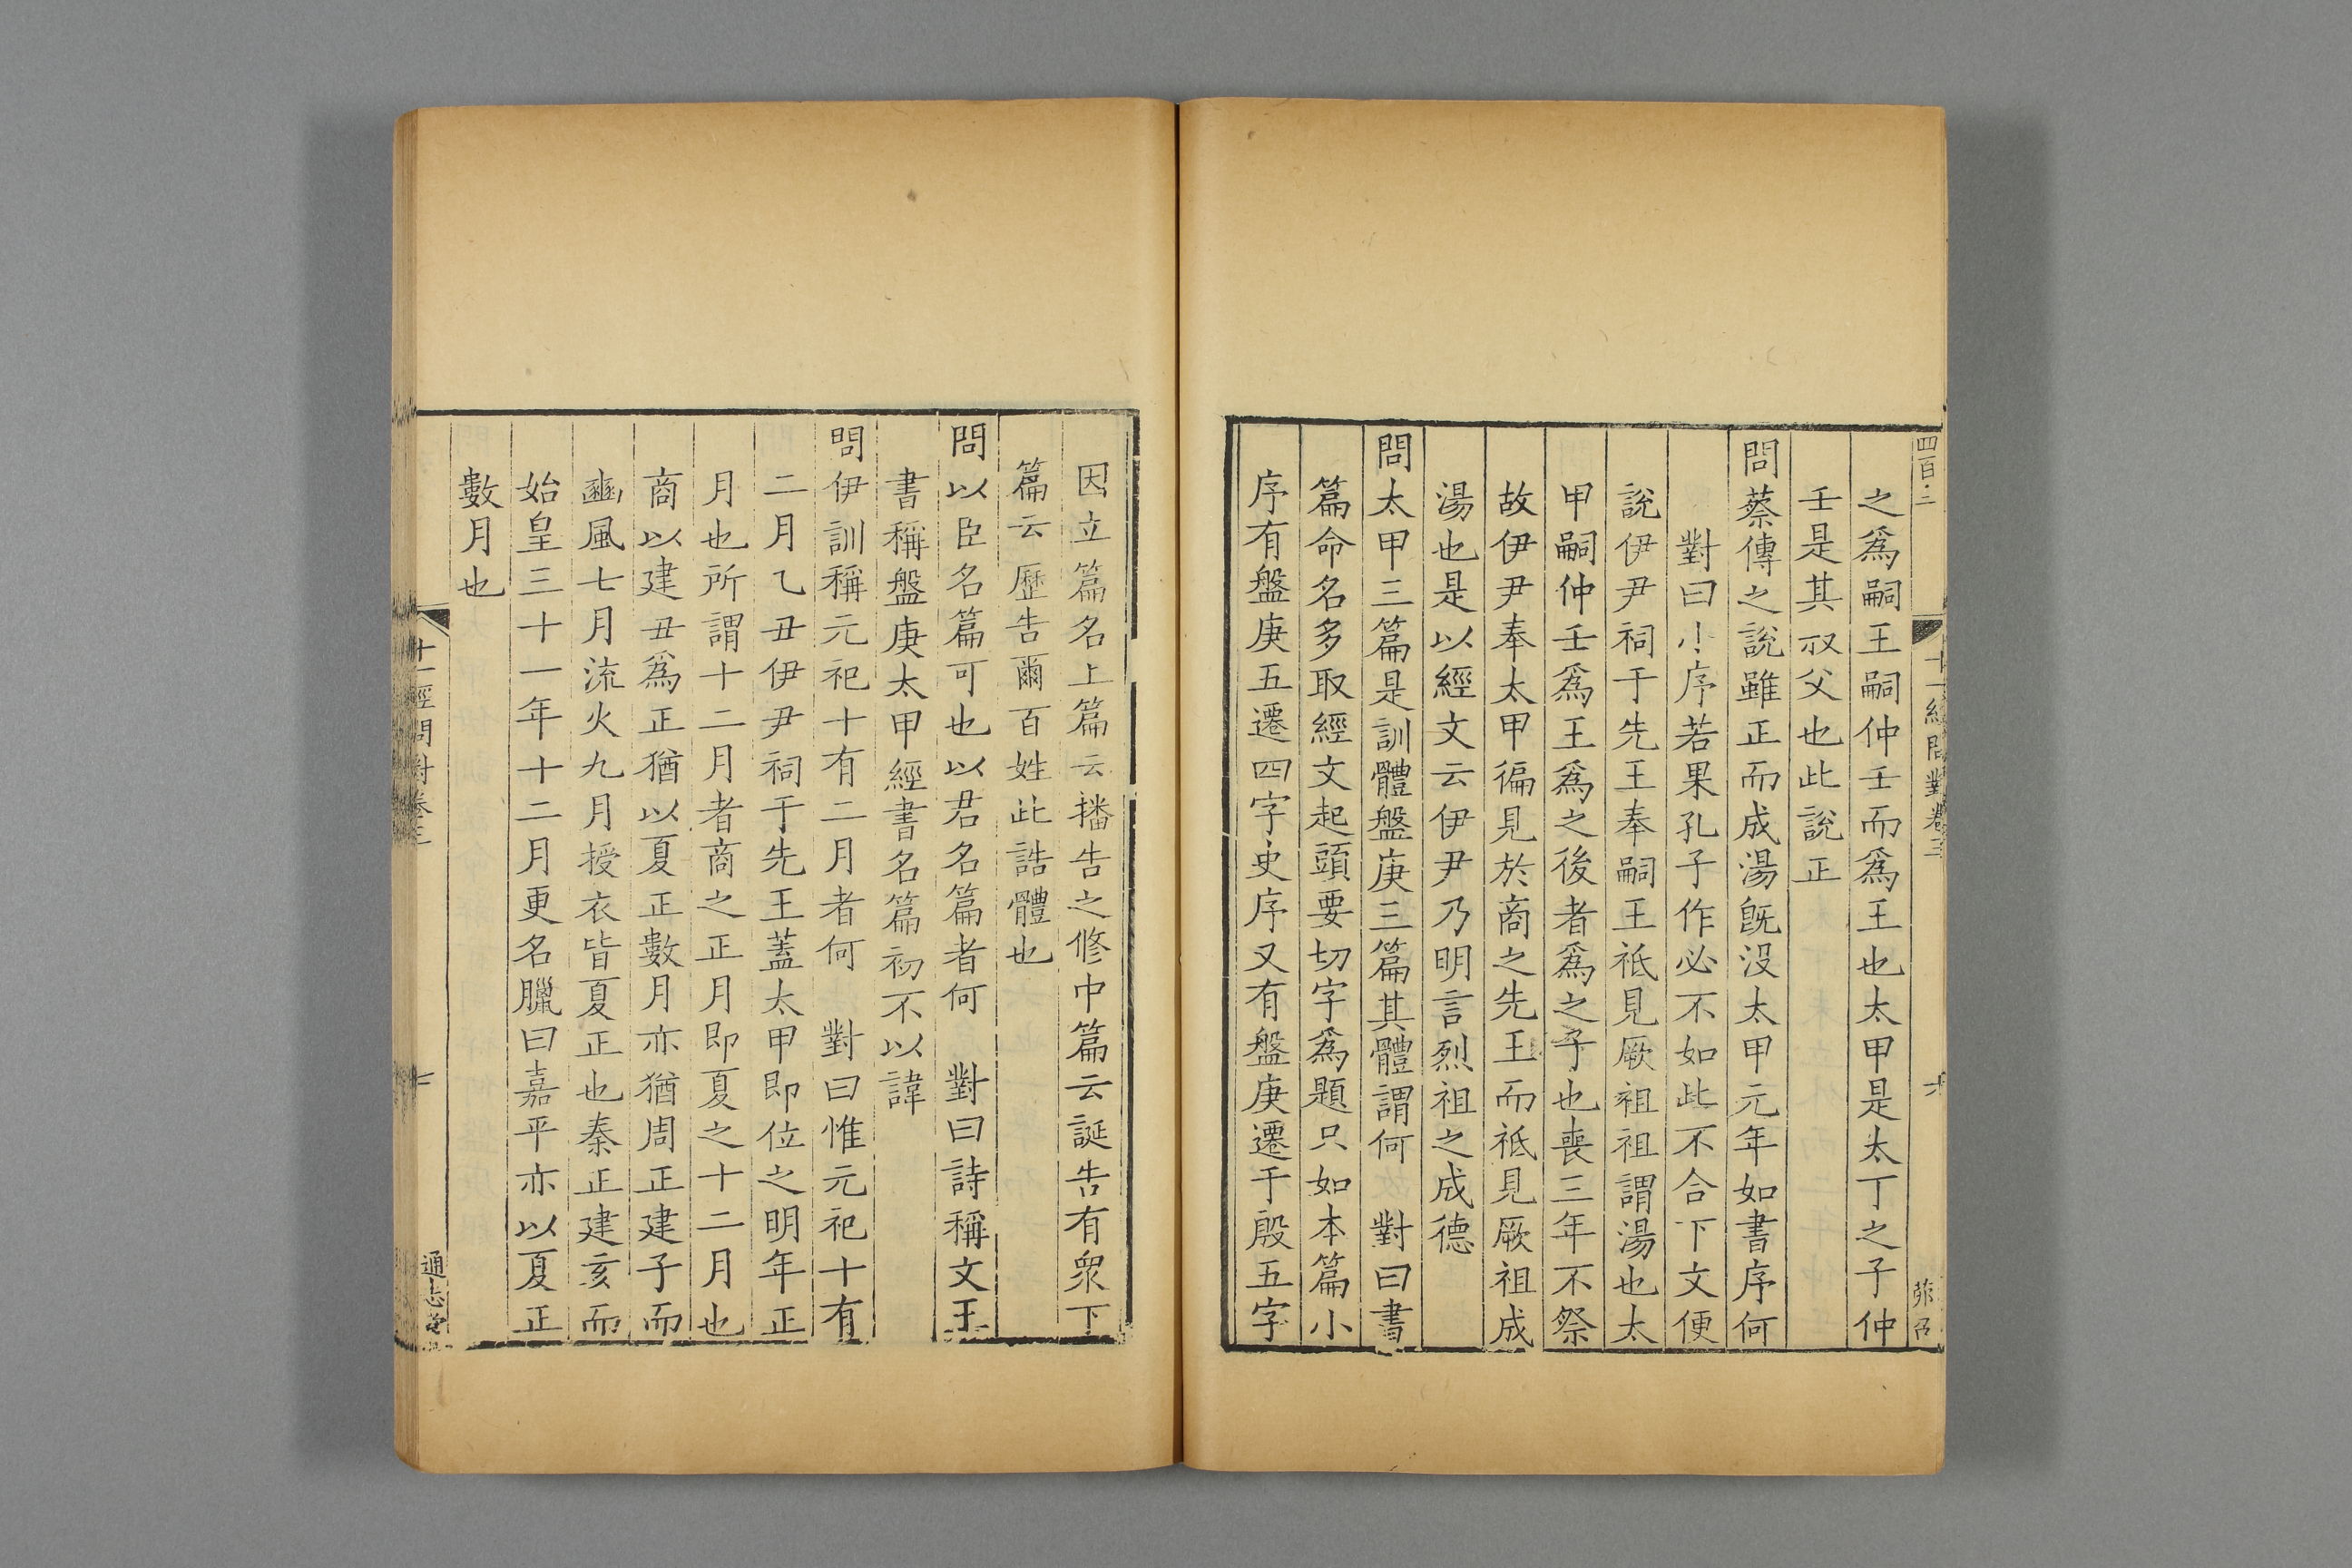 四百二
十一經問對卷三
六
之爲嗣王嗣仲壬而爲王也太甲是太丁之子仲
壬是其叔父也此說正
問蔡傳之說雖正而成湯旣没太甲元年如書序何
對曰小序若果孔子作必不如此不合下文便
說伊尹祠于先王奉嗣王祗見厥祖祖謂湯也太
甲嗣仲壬爲王爲之後者爲之子也喪三年不祭
故伊尹奉太甲徧見於商之先王而祗見厥祖成
湯也是以經文云伊尹乃明言烈祖之成德
問太甲三篇是訓體盤庚三篇其體謂何　對曰書
篇命名多取經文起頭要切字爲題只如本篇小
序有盤庚五遷四字史序又有盤庚遷于殷五字
因立篇名上篇云播告之修中篇云誕告有衆下
篇云歷告爾百姓此誥體也
問以臣名篇可也以君名篇者何　對曰詩稱文王
書稱盤庚太甲經書名篇初不以諱
問伊訓稱元祀十有二月者何　對曰惟元祀十有
二月乙丑伊尹祠于先王蓋太甲即位之明年正
月也所謂十二月者商之正月即夏之十二月也
商以建丑爲正猶以夏正數月亦猶周正建子而
豳風七月流火九月授衣皆夏正也秦正建亥而
始皇三十一年十二月更名臘曰嘉平亦以夏正
數月也
十一經問對卷三
七
通志堂